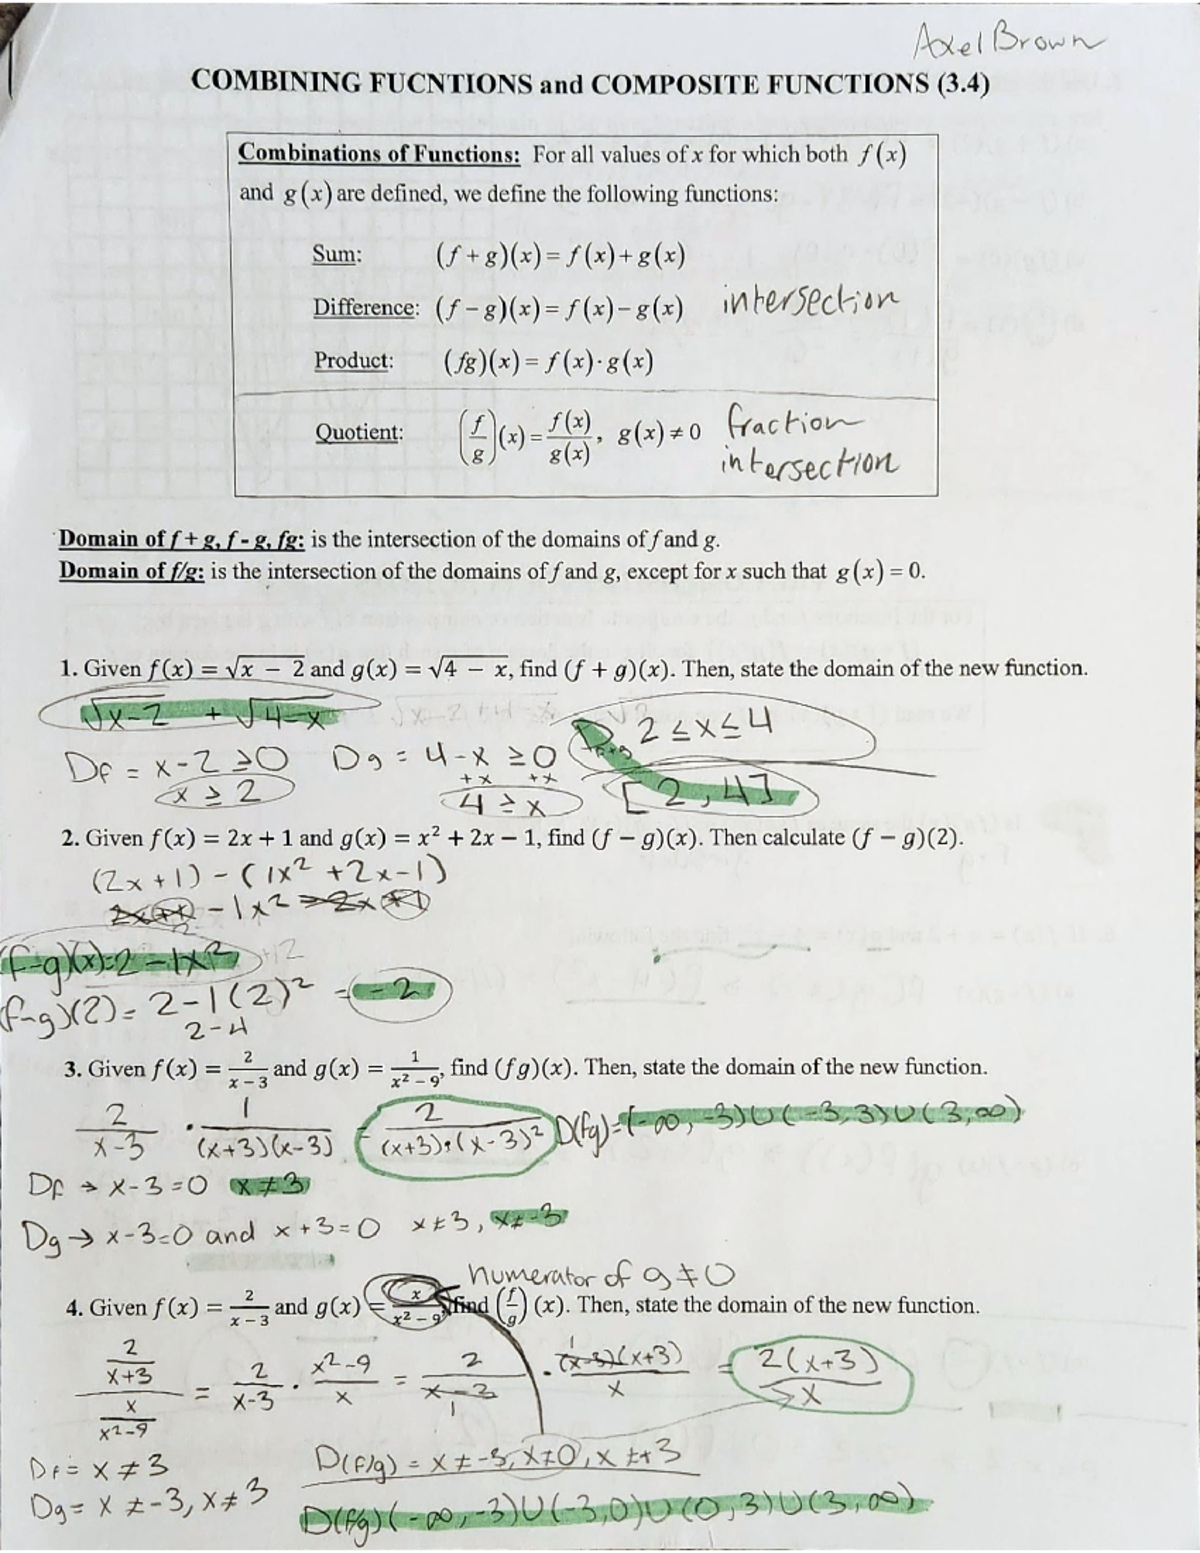 Axel Brown
COMBINING FUCNTIONS and COMPOSITE FUNCTIONS (3.4)
Combinations of Functions: For all values of x for which both f(x)
and g(x) are defined, we define the following functions:
Sum: (f + g)(x) = f(x) + g(x)
Difference: (f − g)(x) = f(x) − g(x) intersection
Product: (fg)(x) = f(x) · g(x)
Quotient: (f/g)(x) = f(x)/g(x), g(x) ≠ 0 fraction
intersection
Domain of f + g, f - g, fg: is the intersection of the domains of f and g.
Domain of f/g: is the intersection of the domains of f and g, except for x such that g(x) = 0.
1. Given f(x) = √x − 2 and g(x) = √4 − x, find (f + g)(x). Then, state the domain of the new function.
√x-2 + √4-x
D f+g 2 ≤ x ≤ 4
Df = x-2 ≥ 0 Dg = 4-x ≥ 0
+x +x
x ≥ 2 4 ≥ x [2,4]
2. Given f(x) = 2x + 1 and g(x) = x² + 2x − 1, find (f − g)(x). Then calculate (f − g)(2).
(2x+1) - (1x² +2x-1)
2x+1 -1x² -2x +1
(f-g)(x)=2-1x²
(f-g)(2)= 2-1(2)² = -2
2-4
3. Given f(x) = 2/(x − 3) and g(x) = 1/(x² − 9), find (fg)(x). Then, state the domain of the new function.
2/(x-3) · 1/((x+3)(x-3)) = 2/((x+3)·(x-3)²) D(fg)=(-∞,-3)U(-3,3)U(3,∞)
Df → x-3=0 x≠3
Dg → x-3=0 and x+3=0 x≠3, x≠-3
numerator of g≠0
4. Given f(x) = 2/(x − 3) and g(x) = x/(x² − 9), find (f/g)(x). Then, state the domain of the new function.
(2/(x+3))/(x/(x²-9)) = 2/(x-3) · (x²-9)/x = 2/(x-3) · ((x-3)(x+3))/x = 2(x+3)/x
1 1
Df = x≠3 D(f/g) = x≠-3, x≠0, x≠+3
Dg = x≠-3, x≠3
D(f/g)(-∞,-3)U(-3,0)U(0,3)U(3,∞)